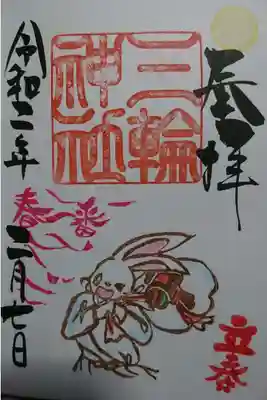 奉拝
三輪神社
立春
春一番
令和二年
二月七日